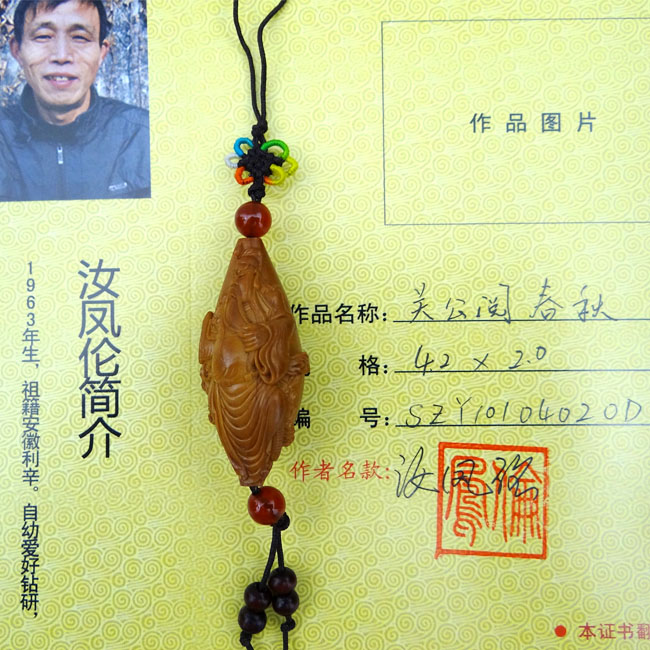 作品图片
汝凤伦简介
1963年生，祖籍安徽利辛。自幼爱好钻研，
作品名称：关公阅春秋
格：4.2 x 2.0
编 号：SZY10104020D
作者名款：汝凤伦
● 本证书翻